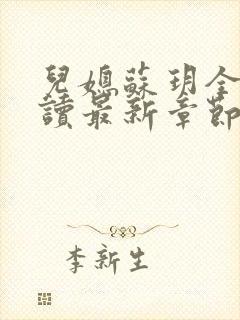 兒媳蘇玥全
讀最新章節
李新生